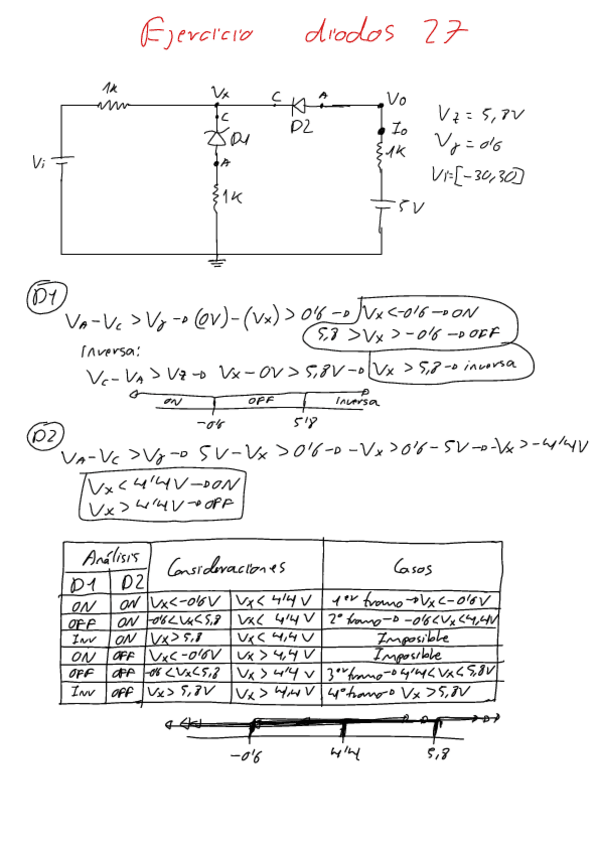 Ejercicio diodos 27
1k
Vx
C
A
Vo
D2
Io
C
D1
A
1K
1K
Vi
5V
Vz = 5,8V
Vγ = 0'6
Vi=[-30,30]
D1
VA-VC > Vγ → (0V)-(Vx) > 0'6 → Vx<-0'6→ON
5,8 > Vx > -0'6 → OFF
Inversa:
VC-VA > Vz → Vx-0V > 5,8V → Vx > 5,8→ inversa
ON OFF Inversa
-0'6 5'8
D2
VA-VC>Vγ → 5V-Vx > 0'6 → -Vx > 0'6-5V → -Vx > -4'4V
Vx < 4'4V →ON
Vx > 4'4V →OFF
Análisis Consideraciones Casos
D1 D2
ON ON Vx<-0'6V Vx< 4'4V 1er tramo →Vx<-0'6V
OFF ON -0'6<Vx<5,8 Vx< 4'4V 2º tramo→ -0'6<Vx<4,4V
INV ON Vx>5,8 Vx<4,4V Imposible
ON OFF Vx<-0'6V Vx > 4,4V Imposible
OFF OFF -0'6<Vx<5,8 Vx > 4'4V 3er tramo→ 4'4<Vx<5,8V
INV OFF Vx> 5,8V Vx > 4,4V 4º tramo→ Vx >5,8V
-0'6 4'4 5,8